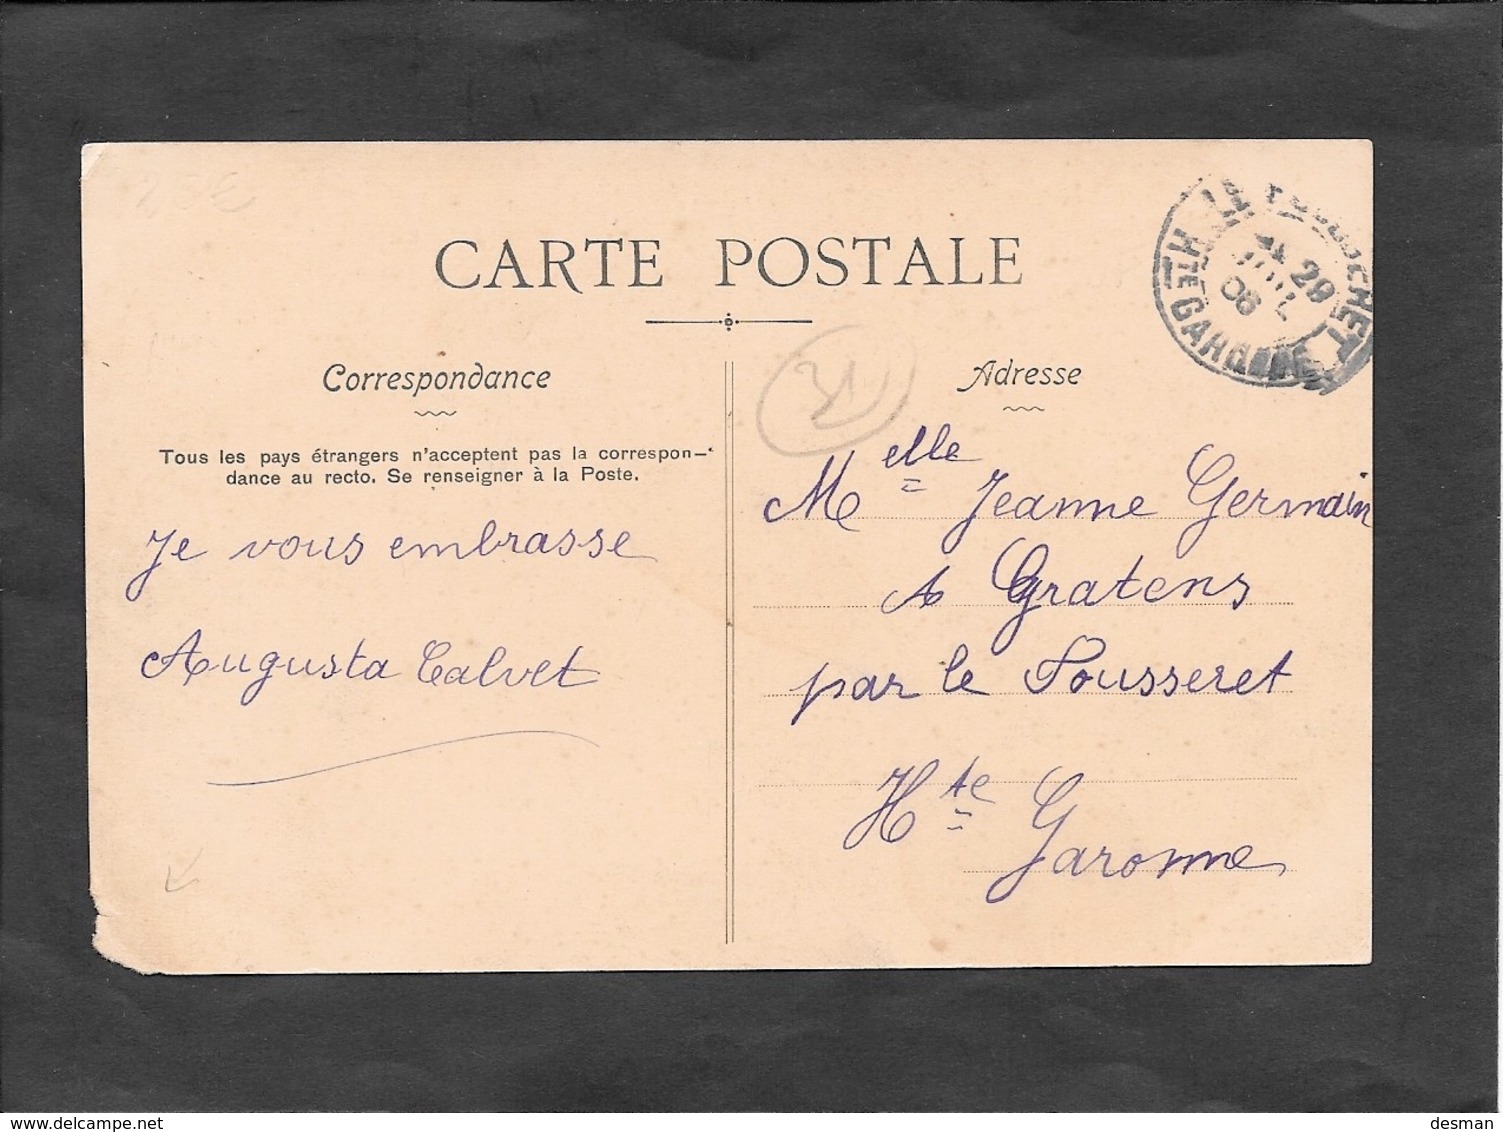 25€
CARTE POSTALE
Correspondance
Tous les pays étrangers n'acceptent pas la correspon-
dance au recto. Se renseigner à la Poste.
Je vous embrasse
Augusta Calvet
Adresse
Melle Jeanne Germain
A Gratens
par le Fousseret
Hte Garonne
HTE GARONNE
29
08
www.delcampe.net
desman